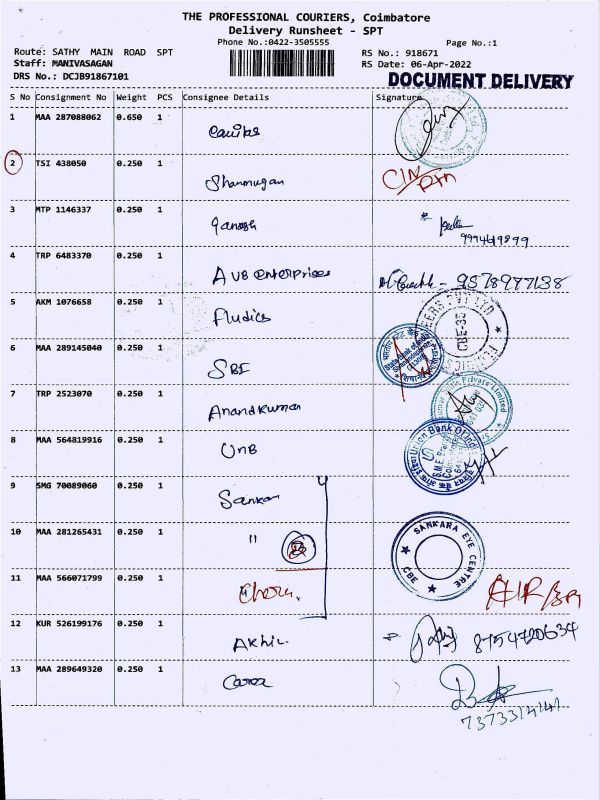 THE PROFESSIONAL COURIERS, Coimbatore
Delivery Runsheet - SPT
Phone No.:0422-3505555
Page No.:1
Route: SATHY MAIN ROAD SPT
RS No.: 918671
Staff: MANIVASAGAN
RS Date: 06-Apr-2022
DRS No.: DCJB91867101
DOCUMENT DELIVERY
S No Consignment No Weight PCS Consignee Details Signature
1 MAA 287088062 0.650 1
2 TSI 438050 0.250 1 Shanmugan
3 MTP 1146337 0.250 1 Ganesh
4 TRP 6483370 0.250 1 AVB enterprises 9578977138
5 AKM 1076658 0.250 1 Fludics
6 MAA 289145040 0.250 1 SBI
7 TRP 2523070 0.250 1 Anandkumar
8 MAA 564819916 0.250 1 UNB
Union Bank of India
9 SMG 70089060 0.250 1 Sankar
10 MAA 281265431 0.250 1 "
SANKARA EYE CENTRE
CBE
11 MAA 566071799 0.250 1
12 KUR 526199176 0.250 1 Akhil 8754720634
13 MAA 289649320 0.250 1